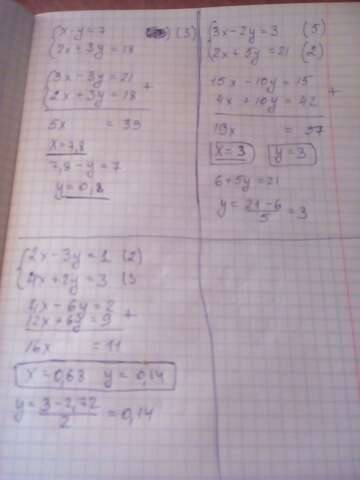 x-y=7 (3)
2x+3y=18
3x-3y=21
2x+3y=18 +
5x = 39
x=7,8
7,8-y=7
y=0,8
3x-2y=3 (5)
2x+5y=21 (2)
15x-10y=15
4x+10y=42 +
19x = 57
x=3 y=3
6+5y=21
y=21-6/5=3
2x-3y=1 (2)
4x+2y=3 (3
4x-6y=2
12x+6y=9 +
16x =11
x=0,68 y=0,14
y=3-2,72/2=0,14